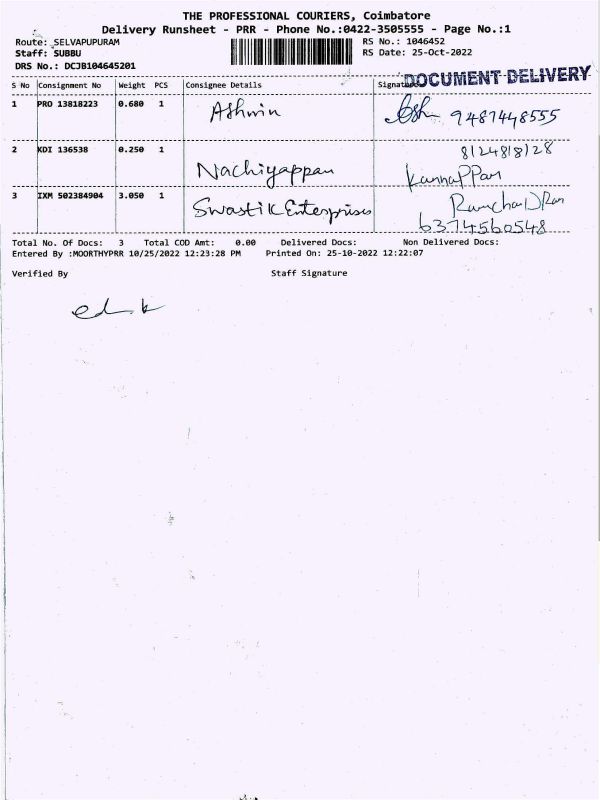 THE PROFESSIONAL COURIERS, Coimbatore
Delivery Runsheet - PRR - Phone No.:0422-3505555 - Page No.:1
Route: SELVAPUPURAM RS No.: 1046452
Staff: SUBBU RS Date: 25-Oct-2022
DRS No.: DCJB104645201
DOCUMENT DELIVERY
S No Consignment No Weight PCS Consignee Details
1 PRO 13818223 0.680 1 Ashwin 9487448555
2 KDI 136538 0.250 1 Nachiyappan 8124818128
Kannappan
3 IXM 502384904 3.050 1 Swastik Enterprises
6374560548
Total No. Of Docs: 3 Total COD Amt: 0.00 Delivered Docs: Non Delivered Docs:
Entered By :MOORTHYPRR 10/25/2022 12:23:28 PM Printed On: 25-10-2022 12:22:07
Verified By Staff Signature